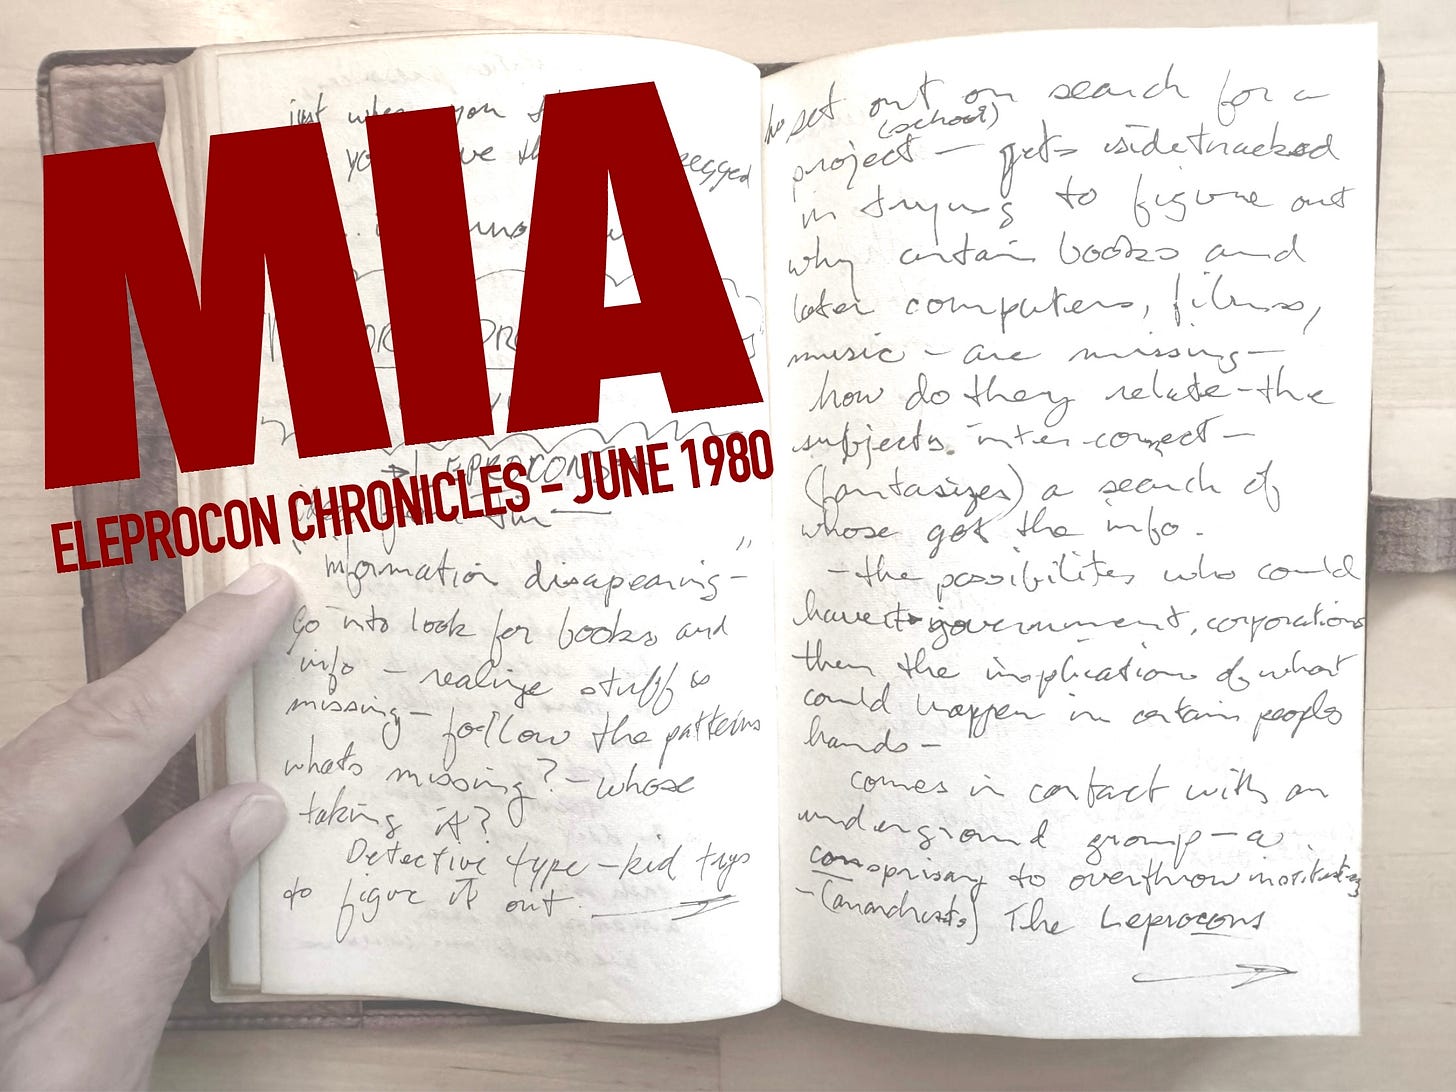 MIA
ELEPROCON CHRONICLES – JUNE 1980
just when you
you
Information disapearing–"
Go into look for books and
info – realize stuff is
missing – follow the patterns
whats missing? – whose
taking it?
Detective type – kid trys
to figure it out.
set out on search for a
(school)
project – gets sidetracked
in trying to figure out
why certain books and
later computers, films,
music – are missing –
how do they relate – the
subjects inter-connect –
(fantasizes) a search of
whose got the info.
– the possibilites who could
have it government, corporations
then the implications of what
could happen in certain peoples
hands –
comes in contact with an
underground group – a
conspirisay to overthrow
– (anarchists) The Leprocons